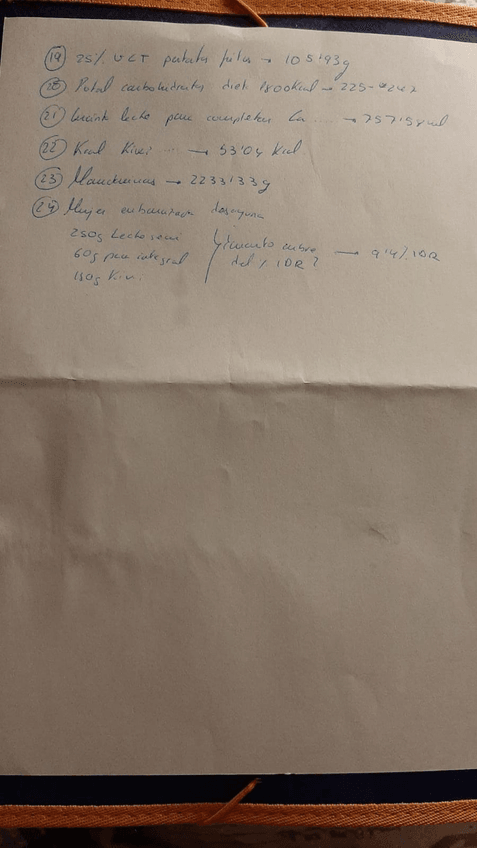 (19) 25% VCT patatas fritas → 105'93g
(20) Total carbohidratos diet 1800Kcal → 225-247
(21) Cuánta leche para completar Ca ... → 757'5
(22) Kcal Kiwi ... → 53'04 Kcal
(23) Mandarinas → 2233'33g
(24) Mujer embarazada desayuna
250g Leche semi
60g pan integral
150g Kiwi
Cuánto cubre
del % IDR?
→ 9'4% IDR